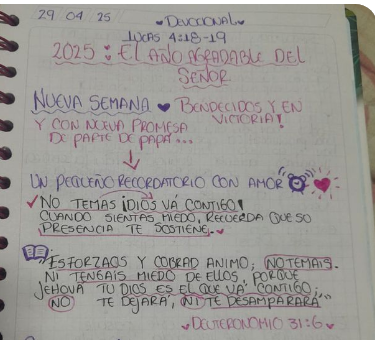 29 04 25 ♥Devocional♥
Lucas 4:18-19
2025: El AÑO AGRADABLE DEL
SEÑOR
NUEVA SEMANA ♥ BENDECIDOS Y EN
VICTORIA!
Y CON NUEVA PROMESA
DE PARTE DE PAPÁ...
UN PEQUEÑO RECORDATORIO CON AMOR
✓NO TEMAS ¡DIOS VA CONTIGO!
CUANDO SIENTAS MIEDO, RECUERDA QUE SO
PRESENCIA TE SOSTIENE.♥
"ESFORZAOS Y COBRAD ANIMO; NO TEMAIS.
NI TENGAIS MIEDO DE ELLOS, PORQUE
JEHOVÁ TU DIOS ES EL QUE VA CONTIGO;
NO TE DEJARÁ, NI TE DESAMPARARÁ"
♥DEUTERONOMIO 31:6♥